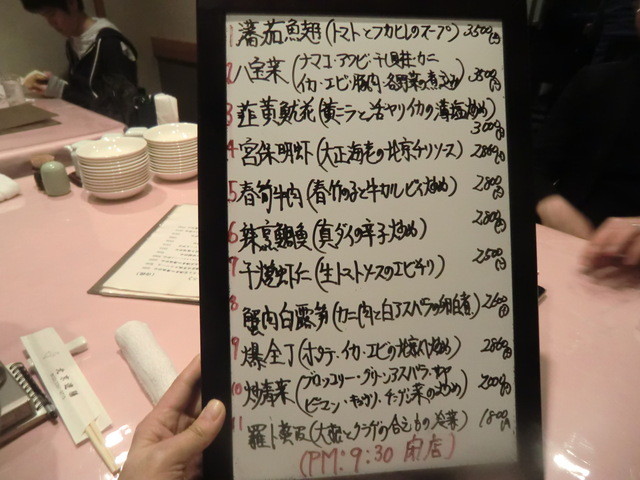 1 蕃茄魚翅(トマトとフカヒレのスープ) 3500円
2 八宝菜(ナマコ・アワビ・干し貝柱・カニ
イカ・エビ・豚肉・各野菜の煮込み) 3500円
3 韮黄魷花(黄ニラと活ヤリイカの薄塩炒め)
3000円
4 宮保明虾(大正海老の北京チリソース) 2860円
5 春筍牛肉(春竹の子と牛カルビィ炒め) 2800円
6 辣烹鯛魚(真ダイの辛子炒め) 2800円
7 干燒虾仁(生トマトソースのエビチリ) 2500円
8 蟹肉白露笋(カニ肉と白アスパラの卵白煮) 2600円
9 爆全丁(ホタテ・イカ・エビの炒め) 2860円
10 炒青菜(ブロッコリー・グリーンアスパラ・
ピーマン・キュウリ・チンゲン菜の炒め) 2000円
11 羅卜黄瓜(大根とクラゲの合え力の冷菜) 1800円
(PM:9:30 閉店)